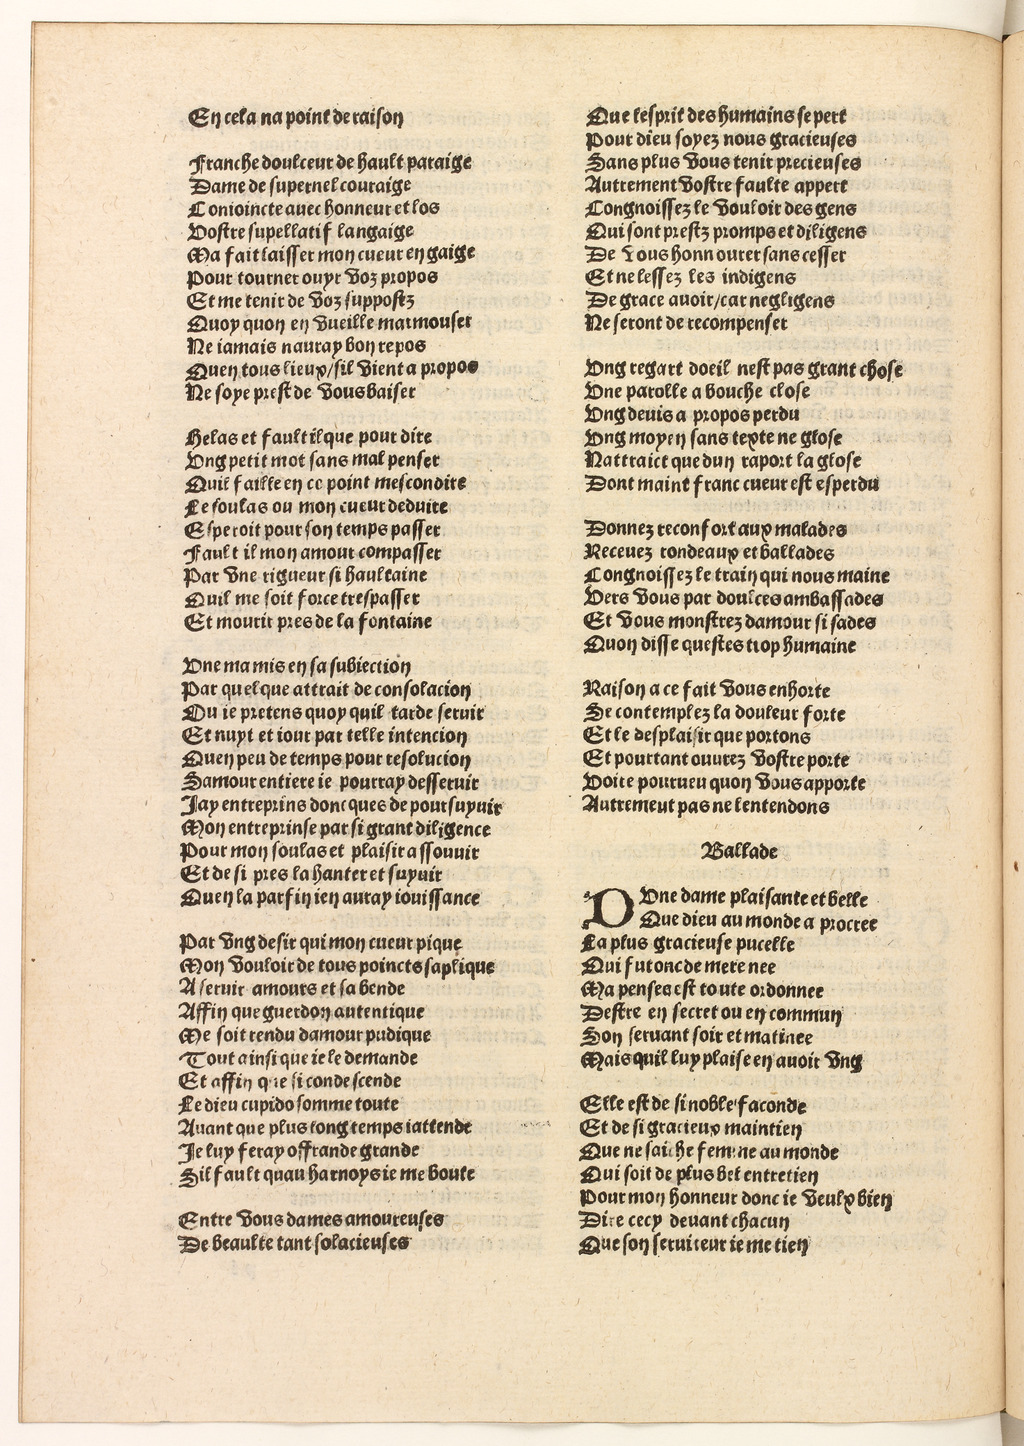 En cela na point de raison
Franche doulceur de hault paraige
Dame de supernel couraige
Conioincte auec honneur et los
Vostre supellatif langaige
Ma fait laisser mon cueur en gaige
Pour tourner ouyr voz propos
Et me tenir de voz suppostz
Quoy quon en vueille marmouser
Ne iamais nauray bon repos
Quen tous lieux/sil vient a propos
Ne soye prest de vous baiser
Helas et fault il que pour dire
Vng petit mot sans mal penser
Quil faille en ce point mescondire
Le soulas ou mon cueur deduire
Esperoit pour son temps passer
Fault il mon amour compasser
Par vne rigueur si haultaine
Quil me soit force trespasser
Et mourir pres de la fontaine
Vne ma mis en sa subiection
Par quelque attrait de consolacion
Ou ie pretens quoy quil tarde seruir
Et nuyt et iour par telle intencion
Quen peu de temps pour resolucion
Samour entiere ie pourray desseruir
Jay entreprins doncques de poursuyuir
Mon entreprinse par si grant diligence
Pour mon soulas et plaisir assouuir
Et de si pres la hanter et suyuir
Quen la parfin ien auray iouissance
Par vng desir qui mon cueur pique
Mon vouloir de tous poincts saplique
A seruir amours et sa bende
Affin que guerdon autentique
Me soit rendu damour pudique
Tout ainsi que ie le demande
Et affin que si condescende
Le dieu cupido somme toute
Auant que plus long temps iattende
Je luy feray offrande grande
Sil fault quau harnoys ie me boute
Entre vous dames amoureuses
De beaulte tant solacieuses
Que lesprit des humains se pert
Pour dieu soyez nous gracieuses
Sans plus vous tenir precieuses
Autrement vostre faulte appert
Congnoissez le vouloir des gens
Qui sont prestz promps et diligens
De vous honnourer sans cesser
Et ne lessez les indigens
De grace auoir/car negligens
Ne seront de recompenser
Vng regart doeil nest pas grant chose
Vne parolle a bouche close
Vng deuis a propos perdu
Vng moyen sans texte ne glose
Nattraict que dun raport la glose
Dont maint franc cueur est esperdu
Donnez reconfort aux malades
Receuez rondeaux et ballades
Congnoissez le train qui nous maine
Vers vous par doulces ambassades
Et vous monstrez damour si sades
Quon disse questes trop humaine
Raison a ce fait vous enhorte
Se contemplez la douleur forte
Et le desplaisir que portons
Et pourtant ouurez vostre porte
Voire pourueu quon vous apporte
Autremeut pas ne lentendons
Ballade
D Vne dame plaisante et belle
Que dieu au monde a procree
La plus gracieuse pucelle
Qui fut onc de mere nee
Ma pensee est toute ordonnee
Destre en secret ou en commun
Son seruant soir et matinee
Mais quil luy plaise en auoir vng
Elle est de si noble faconde
Et de si gracieux maintien
Que ne saiche femme au monde
Qui soit de plus bel entretien
Pour mon honneur donc ie veulx bien
Dire cecy deuant chacun
Que son seruiteur ie me tien